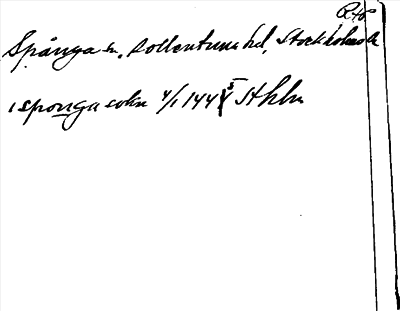 R40
Spånga sn, Sollentuna hd, Stockholms l
i sponga sokn 4/1 1445 Sthlm